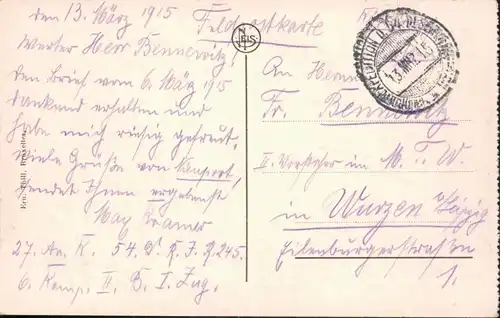 den 13. März 1915 Feldpostkarte
Werter Herr Bennewitz!
Den Brief vom 6. März 1915
dankend erhalten und
habe mich riesig gefreut.
Viele Grüße von
sendet Ihnen ergebenst
Max Kramer
27. A. K. 54. D. R. I. R. 245.
6. Komp. II. B. I. Zug.
NELS
An Herrn
Fr. Bennewitz
II. Vorsteher im M. T. V.
in Wurzen b/Leipzig
Eilenburgerstraße
1.
Ern. Thill, Bruxelles